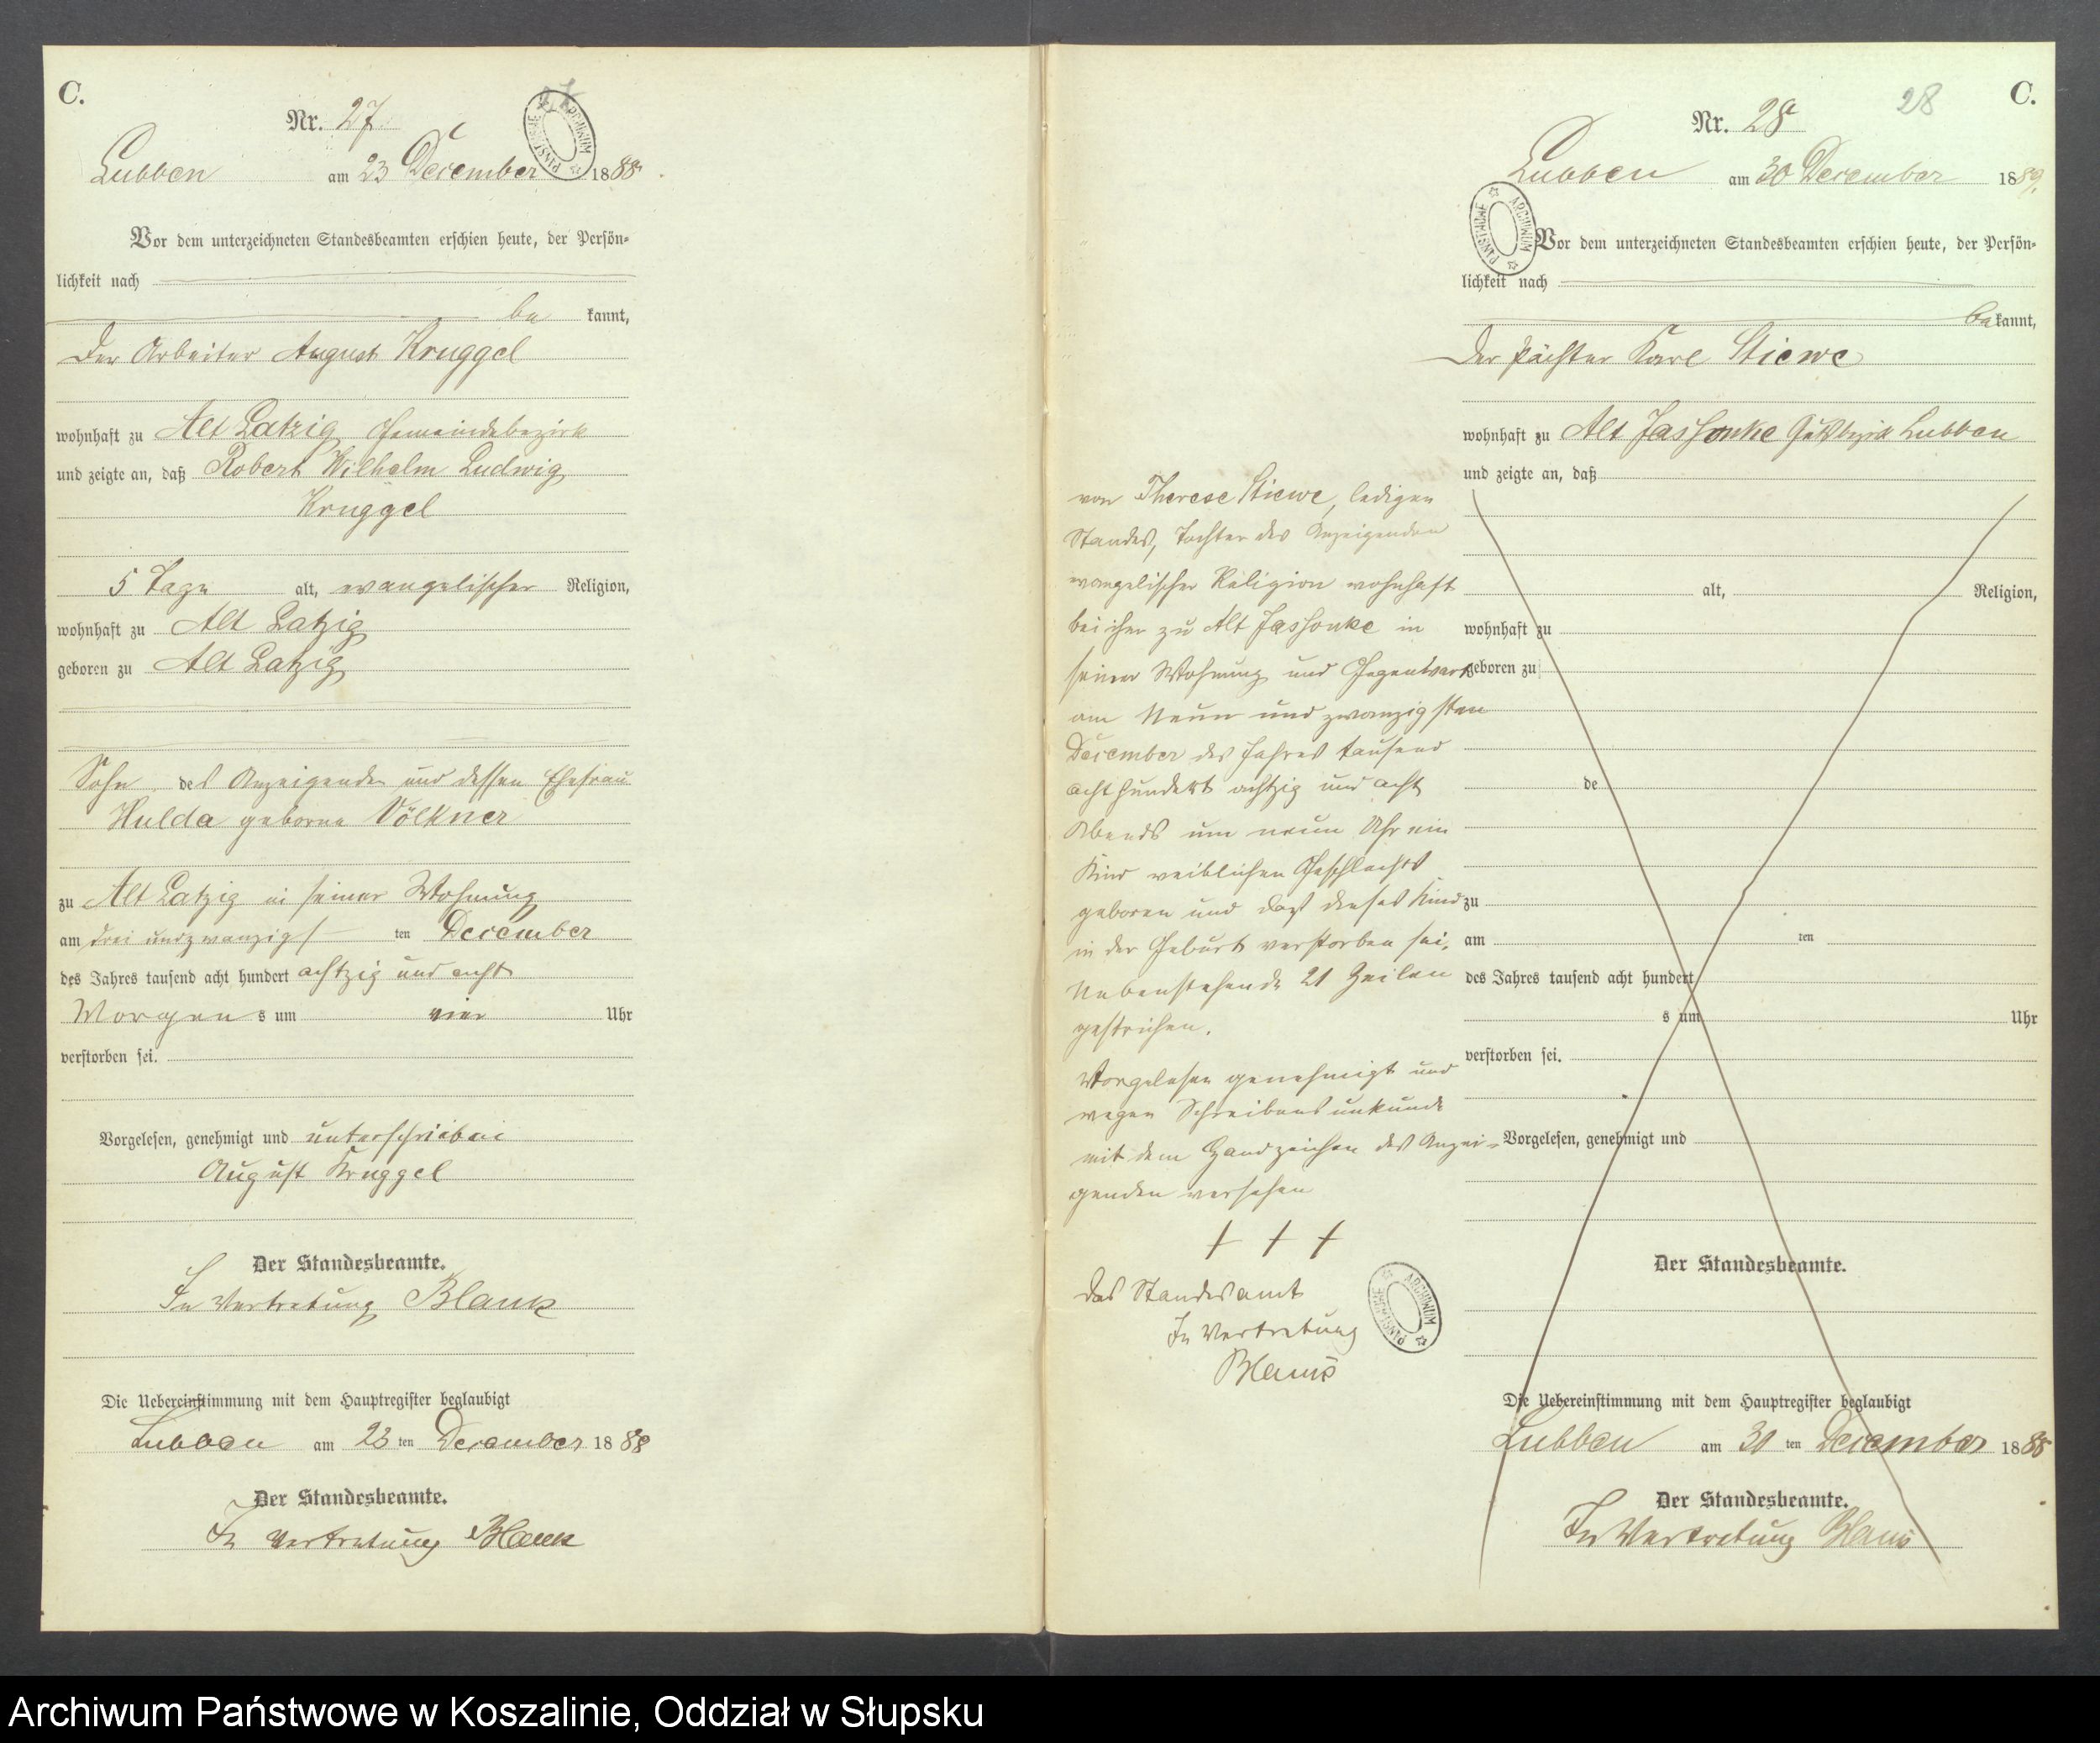 C.
Nr. 27.
Lubben am 23 December 1888.
Vor dem unterzeichneten Standesbeamten erschien heute, der Persön-
lichkeit nach
be kannt,
Der Arbeiter August Kruggel
wohnhaft zu Alt Latzig Gemeindebezirk
und zeigte an, daß Robert Wilhelm Ludwig
Kruggel
5 Tage alt, evangelischer Religion,
wohnhaft zu Alt Latzig
geboren zu Alt Latzig
Sohn des Anzeigenden und dessen Ehefrau
Hulda geborne Völkner
zu Alt Latzig in seiner Wohnung
am drei und zwanzigs ten December
des Jahres tausend acht hundert achtzig und acht
Morgen s um vier Uhr
verstorben sei.
Vorgelesen, genehmigt und unterschrieben
August Kruggel
Der Standesbeamte.
In Vertretung Blank
Die Uebereinstimmung mit dem Hauptregister beglaubigt
Lubben am 23 ten December 1888
Der Standesbeamte.
In Vertretung Blank
PAŃSTWOWE ARCHIWUM
C.
28
Nr. 28
Lubben am 30 December 188
PAŃSTWOWE ARCHIWUM
Vor dem unterzeichneten Standesbeamten erschien heute, der Persön-
lichkeit nach
be kannt,
Der Pächter Karl Stiewe
wohnhaft zu Alt Jassonke Gutsbezirk Lubben
und zeigte an, daß
von Therese Stiewe, ledigen
Standes, Tochter des Anzeigenden
evangelischer Religion wohnhaft
bei ihm zu Alt Jassonke in
seiner Wohnung und Gegenwart
am Neun und zwanzigsten
December des Jahres tausend
acht hundert achtzig und acht
Abends um neun Uhr ein
Kind weiblichen Geschlechts
geboren und daß dieses Kind
in der Geburt verstorben sei.
Nebenstehende 21 Zeilen
gestrichen.
Vorgelesen genehmigt und
wegen Schreibensunkunde
mit dem Handzeichen des Anzei-
genden versehen
+ + +
Das Standesamt
In Vertretung
Blank
PAŃSTWOWE ARCHIWUM
alt, Religion,
wohnhaft zu
geboren zu
de
zu
am ten
des Jahres tausend acht hundert
s um Uhr
verstorben sei.
Vorgelesen, genehmigt und
Der Standesbeamte.
Die Uebereinstimmung mit dem Hauptregister beglaubigt
Lubben am 30 ten December 1888
Der Standesbeamte.
In Vertretung Blank
Archiwum Państwowe w Koszalinie, Oddział w Słupsku